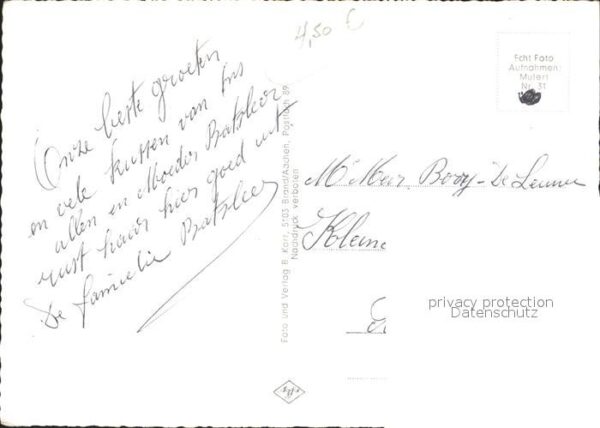 4,50 €
Onze beste groeten
en vele kussen van ons
allen en Moeder Batsleer
rust haar hier goed uit,
De familie Batsleer
Foto und Verlag B. Karr, 5103 Brand/Aachen, Postfach 89
Nachdruck verboten
Echt Foto
Aufnahmen:
Mulert
Nr. 31
Mr Mevr Booy - De Leeuw
Kleine
privacy protection
Datenschutz